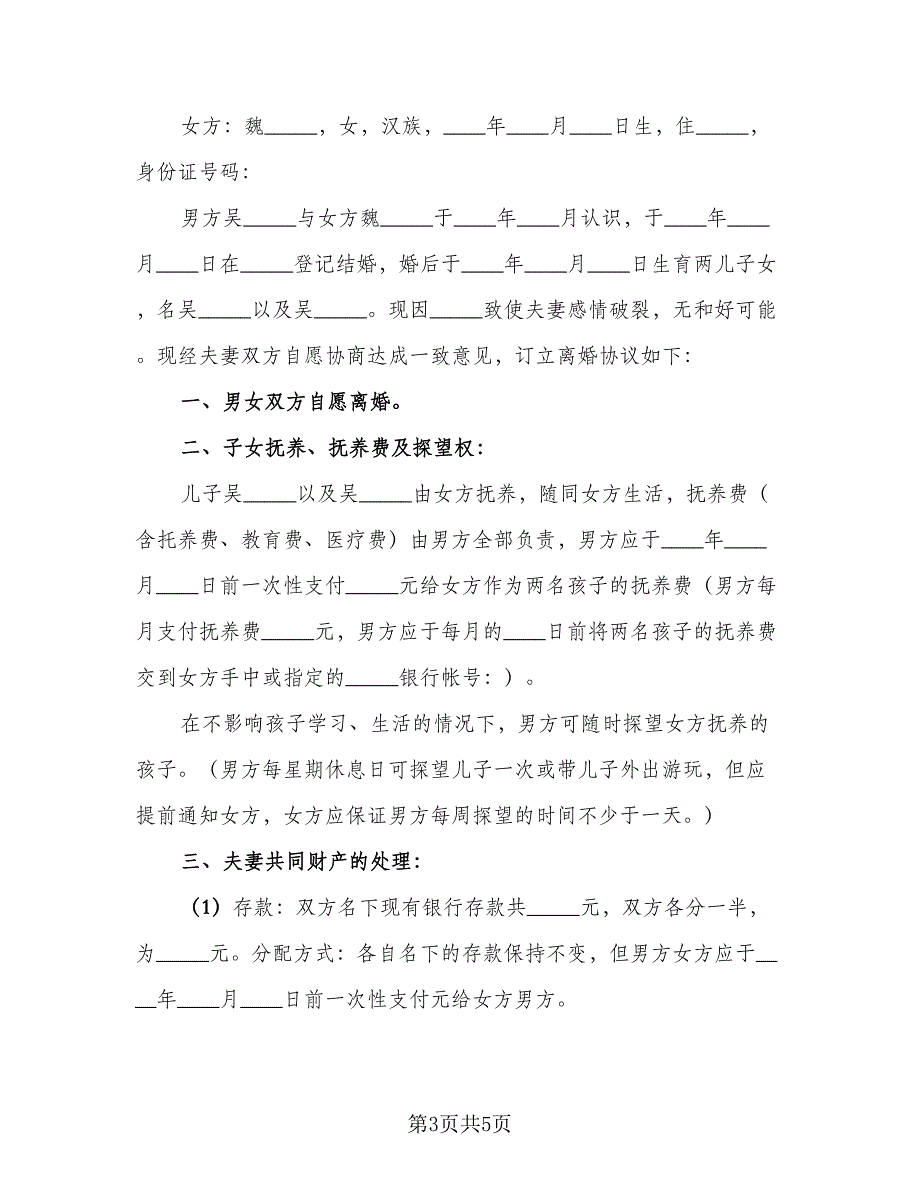 女方：魏_____，女，汉族，____年____月____日生，住_____，
身份证号码：
男方吴_____与女方魏_____于____年____月认识，于____年____
月____日在_____登记结婚，婚后于____年____月____日生育两儿子女
，名吴_____以及吴_____。现因_____致使夫妻感情破裂，无和好可能
。现经夫妻双方自愿协商达成一致意见，订立离婚协议如下：
一、男女双方自愿离婚。
二、子女抚养、抚养费及探望权：
儿子吴_____以及吴_____由女方抚养，随同女方生活，抚养费（
含托养费、教育费、医疗费）由男方全部负责，男方应于____年____
月____日前一次性支付_____元给女方作为两名孩子的抚养费（男方每
月支付抚养费_____元，男方应于每月的____日前将两名孩子的抚养费
交到女方手中或指定的_____银行帐号：）。
在不影响孩子学习、生活的情况下，男方可随时探望女方抚养的
孩子。（男方每星期休息日可探望儿子一次或带儿子外出游玩，但应
提前通知女方，女方应保证男方每周探望的时间不少于一天。）
三、夫妻共同财产的处理：
（1）存款：双方名下现有银行存款共_____元，双方各分一半，
为_____元。分配方式：各自名下的存款保持不变，但男方女方应于__
__年____月____日前一次性支付元给女方男方。
第3页共5页